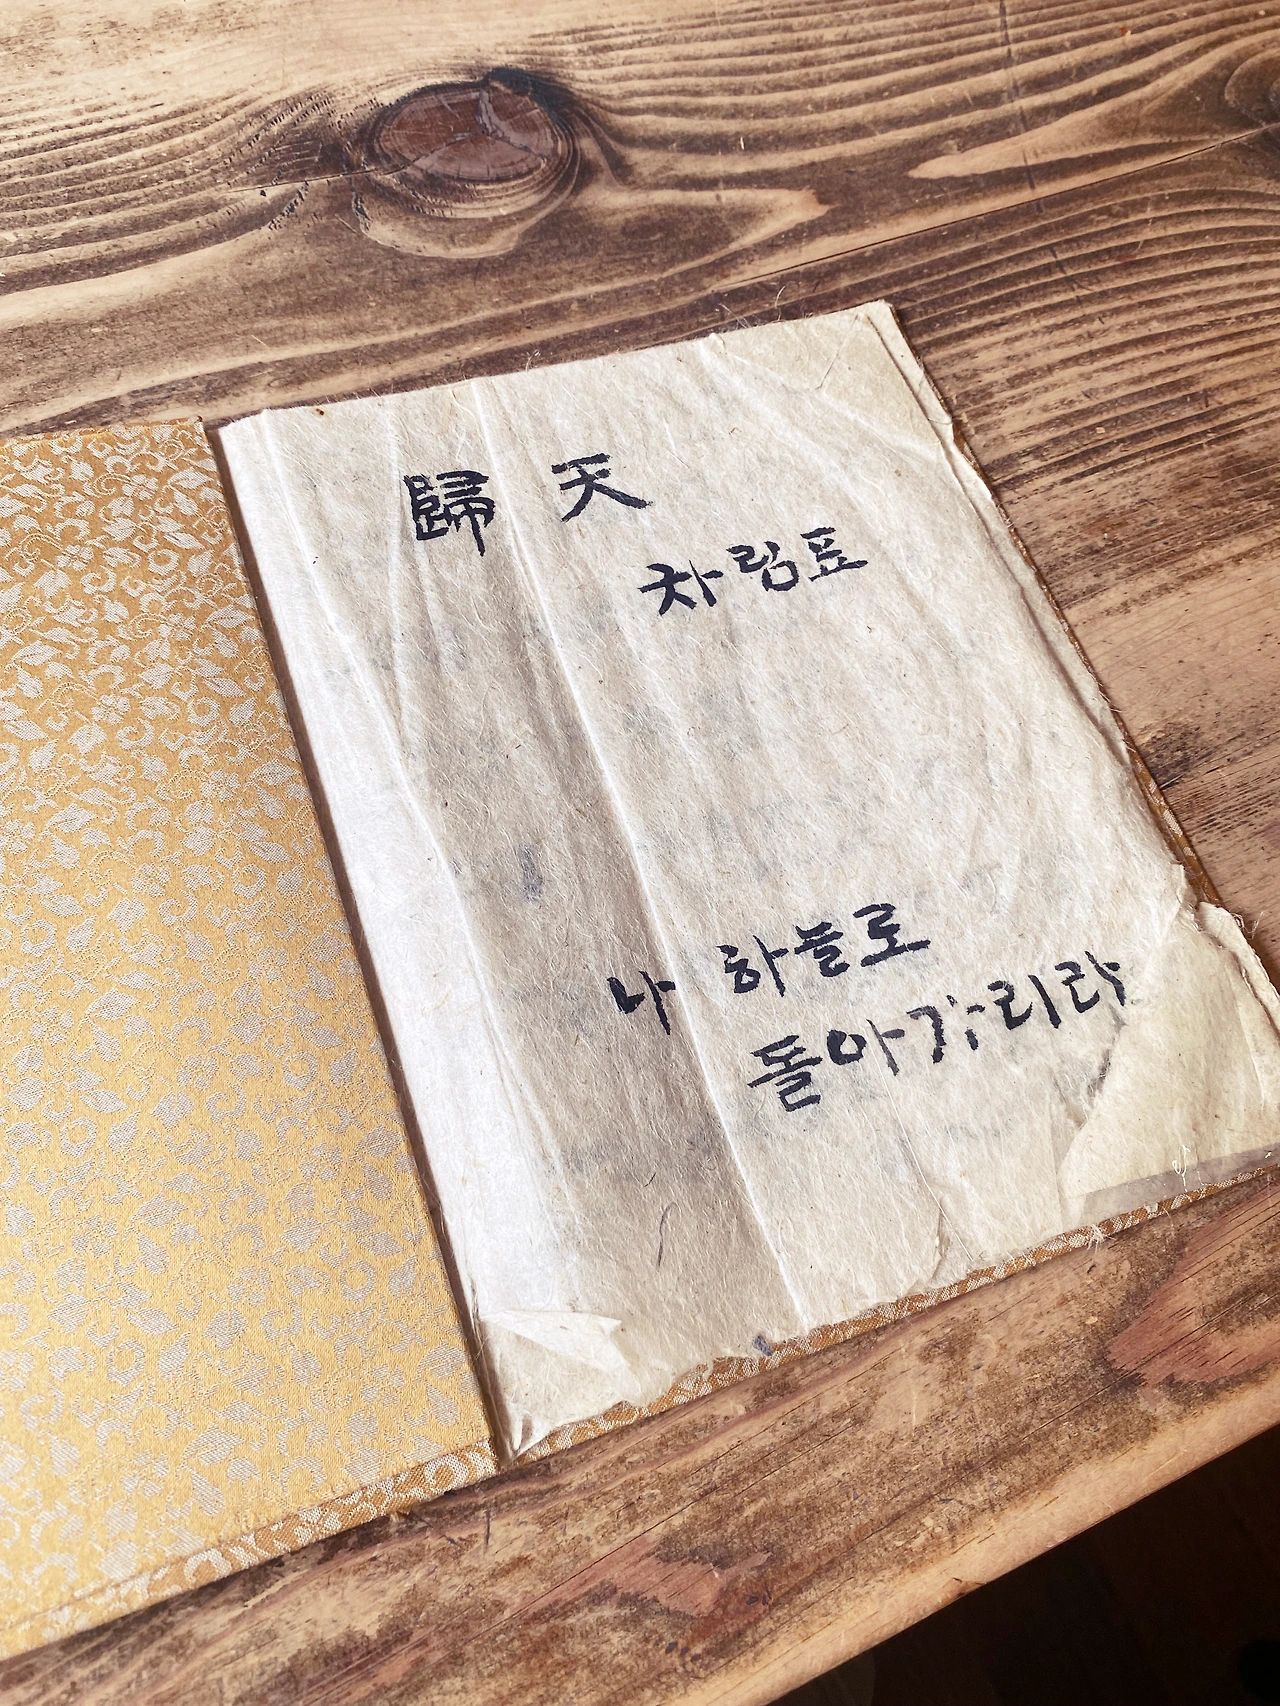 歸 天
차림표
나 하늘로
돌아가리라